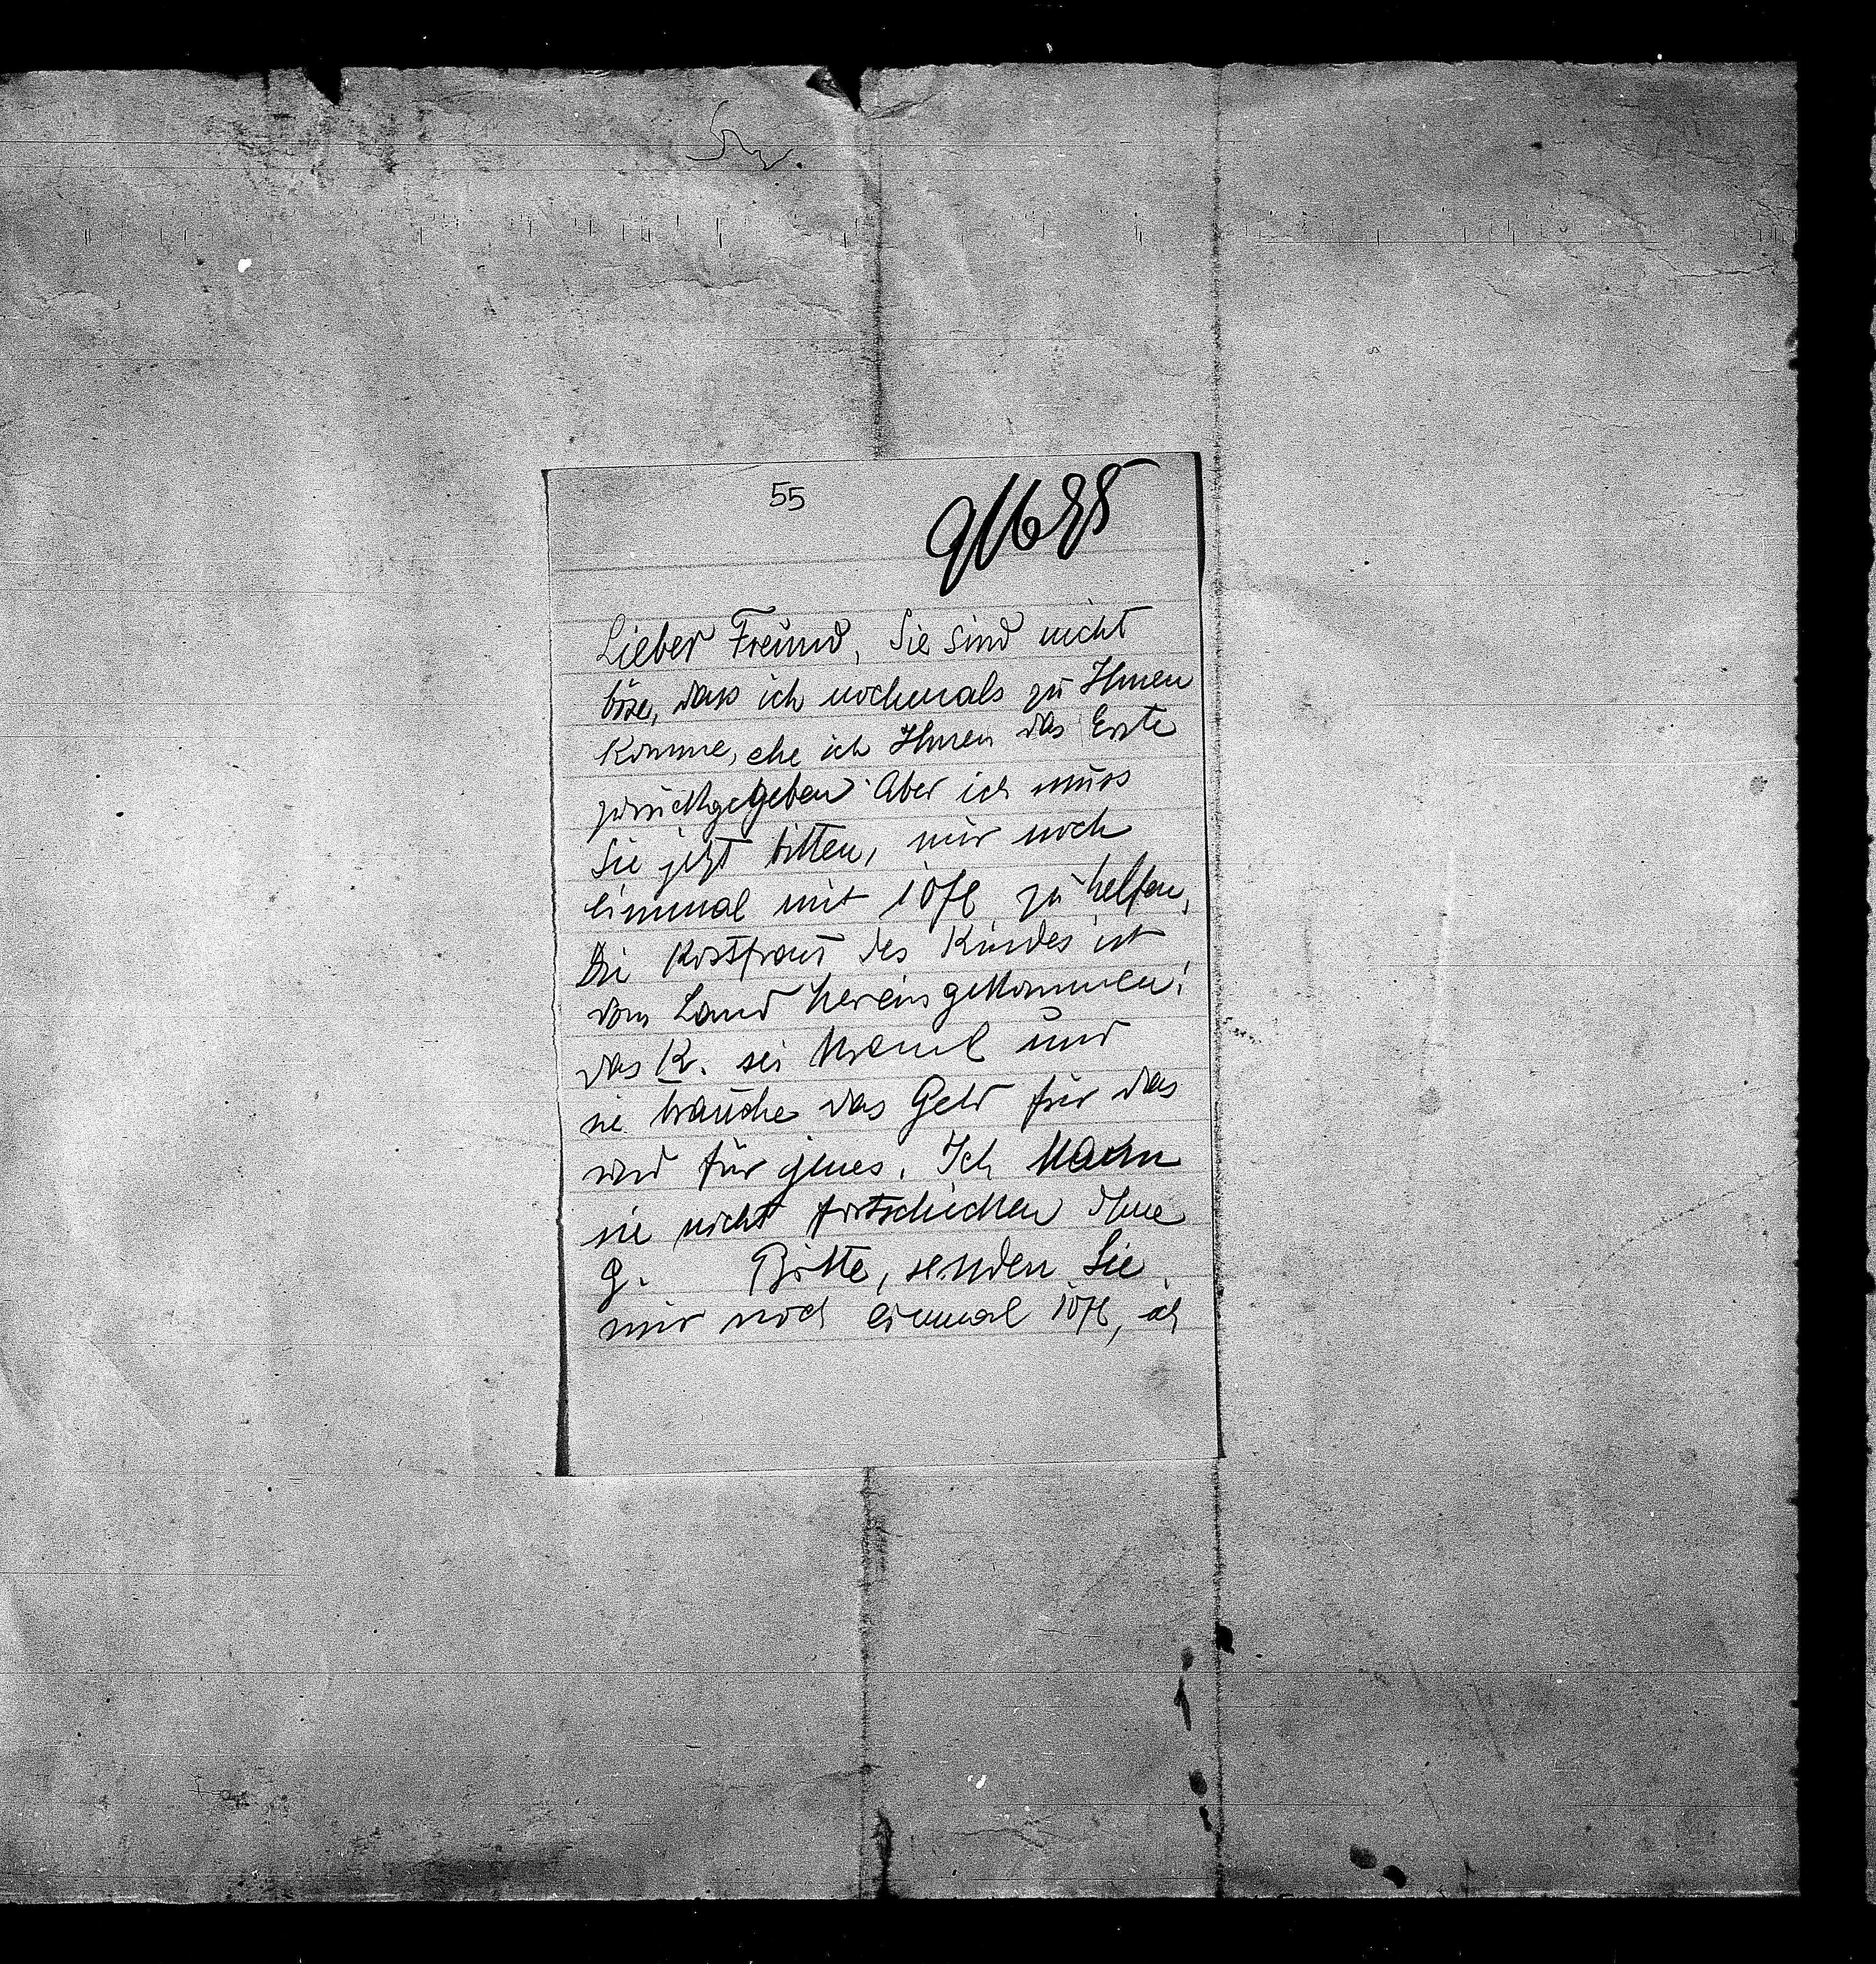 55
9/6 88
Lieber Freund, Sie sind nicht
böse, dass ich nochmals zu Ihnen
komme, ehe ich Ihnen das Erste
zurückgegeben. Aber ich muss
Sie jetzt bitten, mir noch
einmal mit 10 fl zu helfen.
Die Kostfrau des Kindes ist
vom Land hereingekommen:
das K. sei krank und
sie brauche das Geld für das
und für jenes. Ich kann
sie nicht fortschicken ohne
G. Bitte, senden Sie
mir noch einmal 10 fl, ich